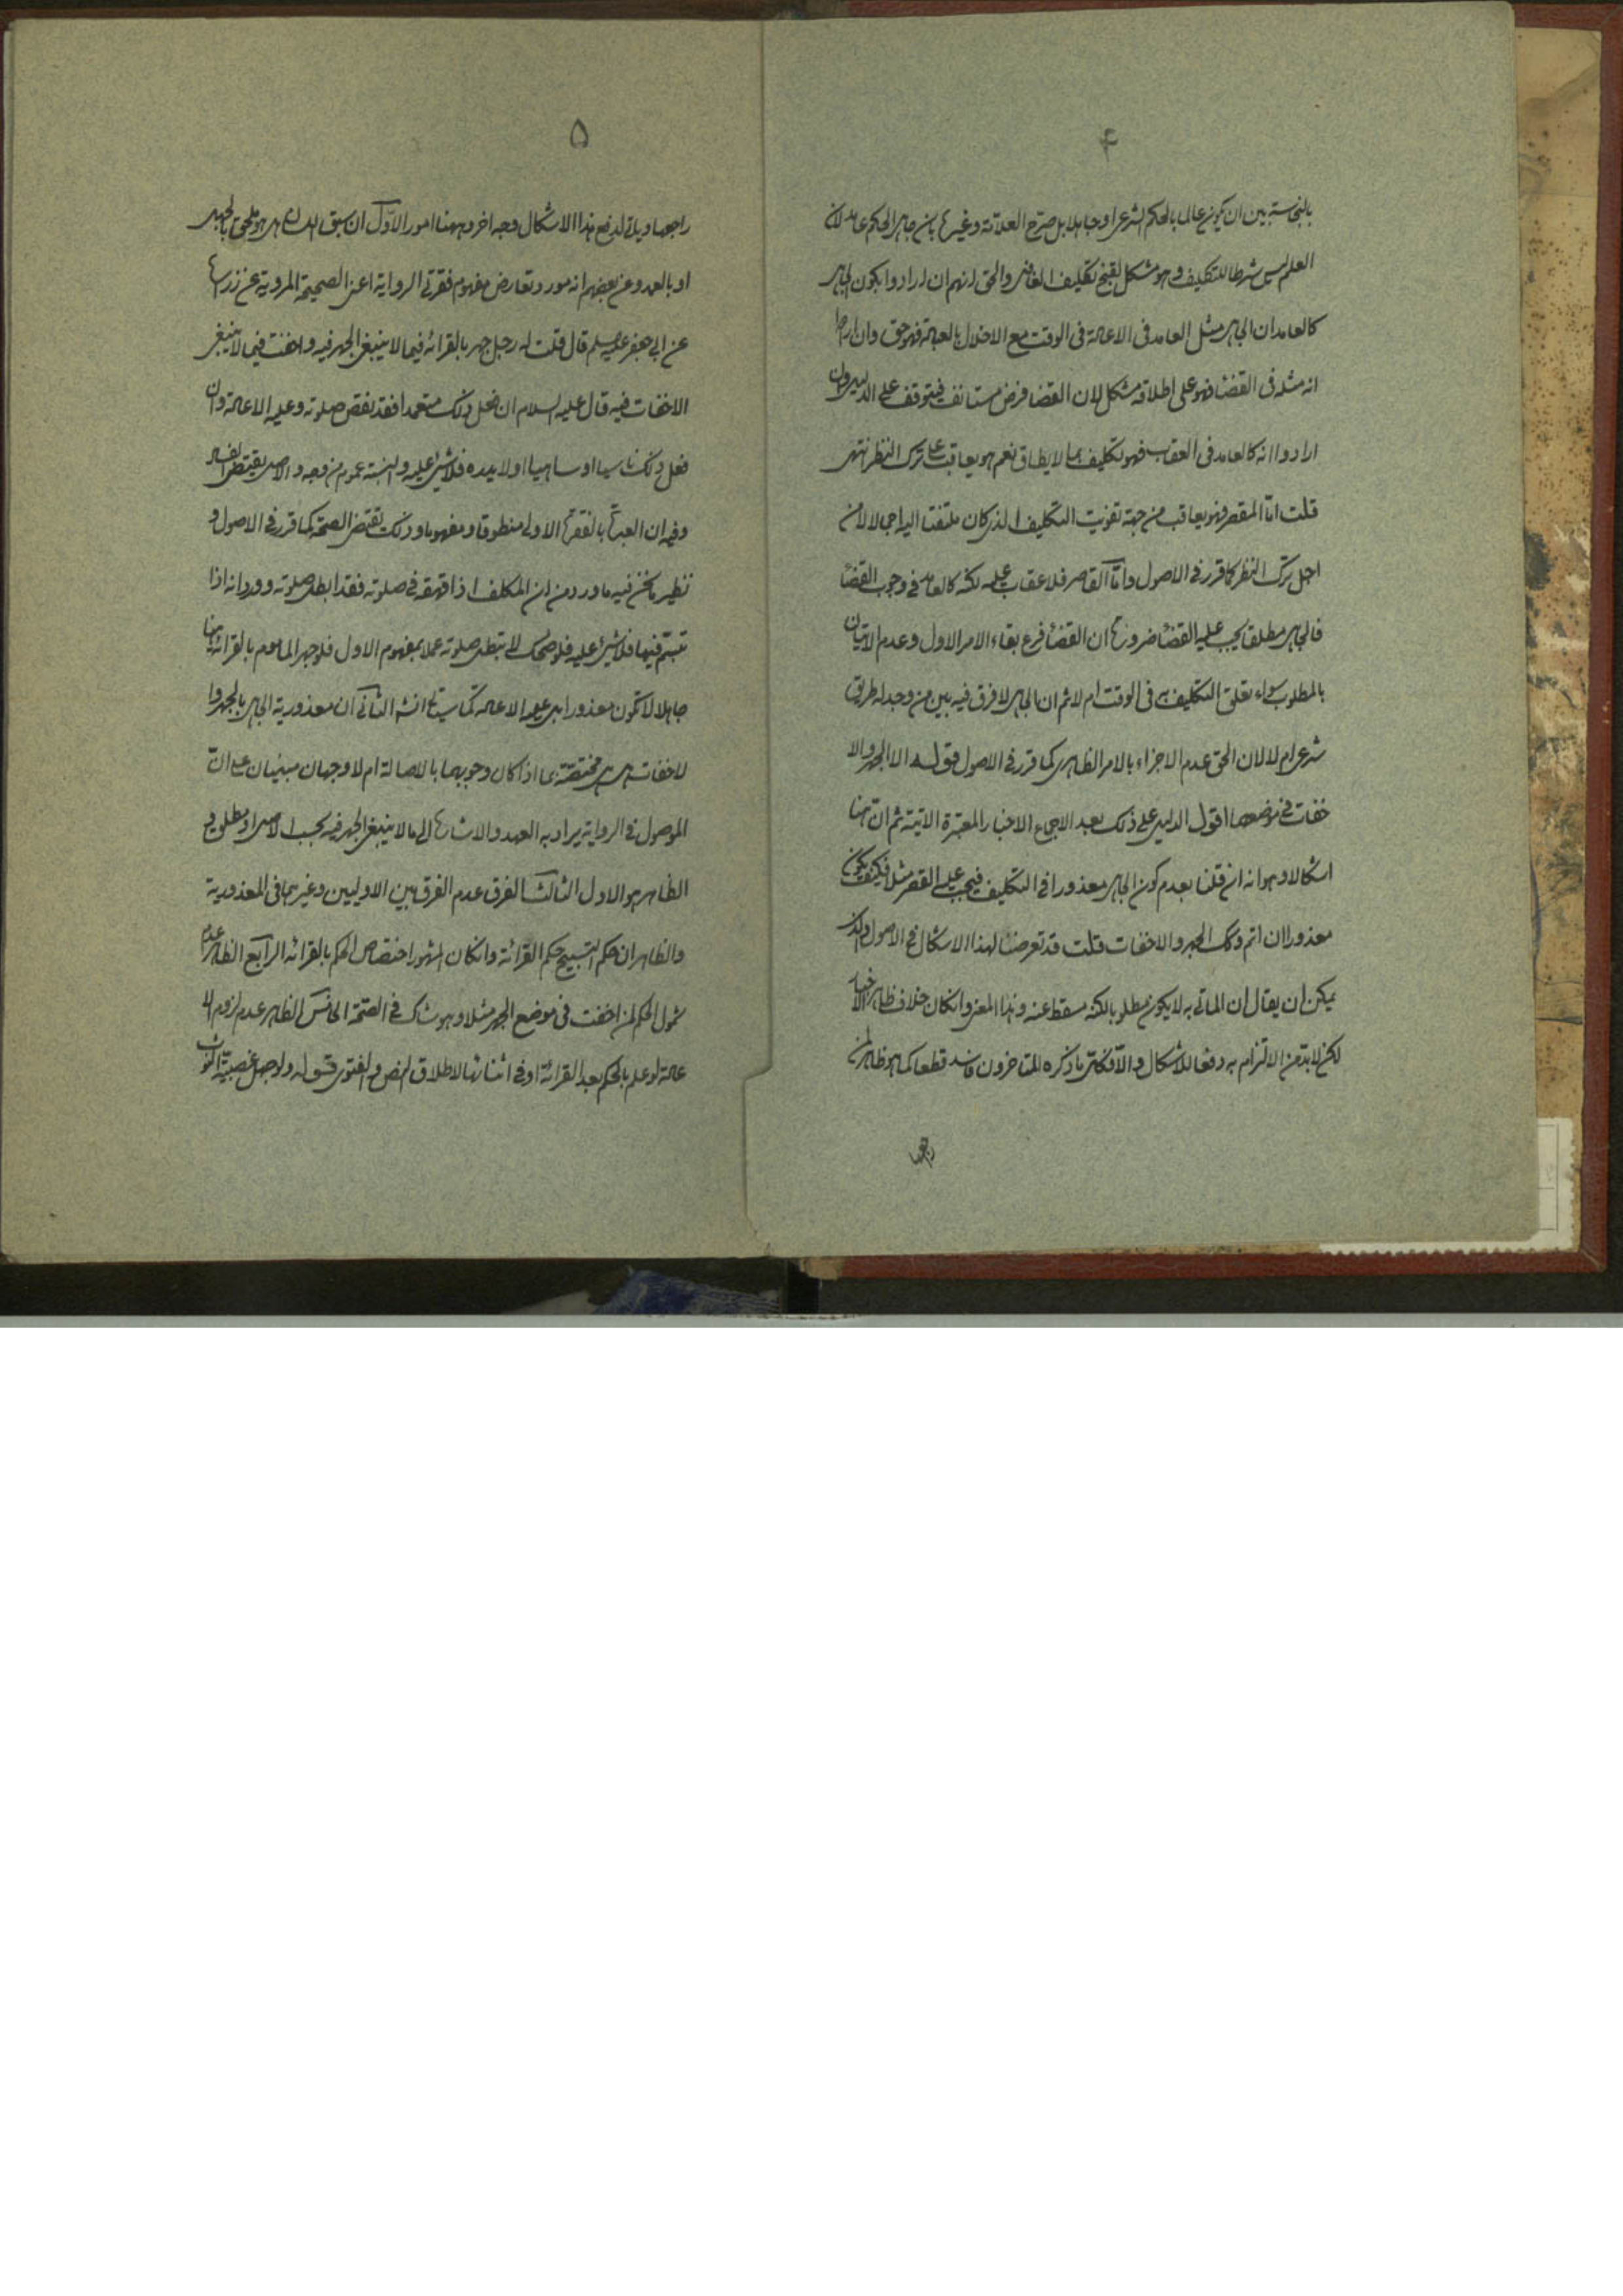 ۴
بالنجاسة بين ان يكون عالما بالحكم الشرعى او جاهلا بل صرح العلامة وغيره بان جاهل الحكم عامد لان
العلم ليس شرطا للتكليف وهو مشكل لقبح تكليف الغافل والحق انهم ان ارادوا بكون الجاهل
كالعامد ان الجاهل مثل العامد فى الاعادة فى الوقت مع الاخلال بالعبادة فهو حق وان ارادوا
انه مثله فى القضاء فهو على اطلاقه مشكل لان القضا فرض مستانف فيتوقف على الدليل وان
ارادوا انه كالعامد فى العقاب فهو تكليف بما لا يطاق نعم هو يعاقب على ترك النظر انتهى
قلت امّا المقصر فهو يعاقب من جهة تفويت التكليف الذى كان ملتفتا اليه اجمالا لا من
اجل ترك النظر كما قرر فى الاصول وامّا القاصر فلا عقاب عليه لكنه كالعامد فى وجوب القضاء
فالجاهل مطلقا يجب عليه القضاء ضرورة ان القضاء فرع بقاء الامر الاول وعدم الاتيان
بالمطلوب سواء تعلق التكليف به فى الوقت ام لا ثم ان الجاهل لا فرق فيه بين من وجد له طريق
شرعى ام لا لان الحق عدم الاجزاء بالامر الظاهرى كما قرر فى الاصول قوله الا الجهر والا
خفات فى موضعهما اقول الدليل على ذلك بعد الاجماع الاخبار المعتبرة الاتية ثم ان هنا
اشكالا وهو انه ان قلنا بعدم كون الجاهل معذورا فى التكليف فيجب عليه القصر مثلا فكيف يكون
معذورا ان اتم وكذلك الجهر والاخفات قلت قد تعرضنا لهذا الاشكال فى الاصول والذى
يمكن ان يقال ان الماتى به لا يكون مطلوبا لكنه مسقط عنه وهذا المعنى وان كان خلاف ظاهر الاخبار
لكن لا بد من الالتزام به دفعا للاشكال والا فكلّ ما ذكره المتاخرون فاسد قطعا كما هو ظاهر لمن
راجعها
۵
راجعها وياتى لدفع هذا الاشكال وجه اخر وههنا امور الاوّل ان سبق اللسان هل هو ملحق بالجهل
او بالعمد وعن بعضهم انه مورد تعارض مفهوم فقرتى الرواية اعنى الصحيحة المروية عن زرارة
عن ابى جعفر عليه السلم قال قلت له رجل جهر بالقرائة فيما لا ينبغى الجهر فيه واخفت فيما لا ينبغى
الاخفات فيه قال عليه السلام ان فعل ذلك متعمدا فقد نقض صلوته وعليه الاعادة وان
فعل ذلك ناسيا او ساهيا او لا يدرى فلا شئ عليه والنسبة عموم من وجه والاصل يقتضى الفساد
وفيه ان العبرة بالفقرة الاولى منطوقا ومفهوما وذلك يقتضى الصحة كما قرر فى الاصول و
نظير ما نحن فيه ما ورد من ان المكلف اذا قهقه فى صلوته فقد ابطل صلوته وورد انه اذا
تبسّم فيها فلا شئ عليه فلو ضحك لا تبطل صلوته عملا بمفهوم الاول فلو جهر الماموم بالقرائة هنا
جاهلا لا تكون معذورا بل عليه الاعادة كما سياتى انشه الثانى ان معذورية الجاهل بالجهر وا
لاخفات هل هى مختصّة بما اذا كان وجوبهما بالاصالة ام لا وجهان مبنيان على ان
الموصول فى الرواية يراد به العهد والاشارة الى ما لا ينبغى الجهر فيه بحسب الاصل او مطلق و
الظاهر هو الاول الثالث الفرق عدم الفرق بين الاوليين وغيرهما فى المعذورية
والظاهر ان حكم التسبيح حكم القرائة وان كان المشهور اختصاص الحكم بالقرائه الرابع الظاهر عدم
شمول الحكم لمن اخفت فى موضع الجهر مثلا وهو شاك فى الصحة الخامس الظاهر عدم لزوم الا
عادة لو علم بالحكم بعد القرائة او فى اثنائها لاطلاق النص والفتوى قوله ولو جهل غصبية الثوب